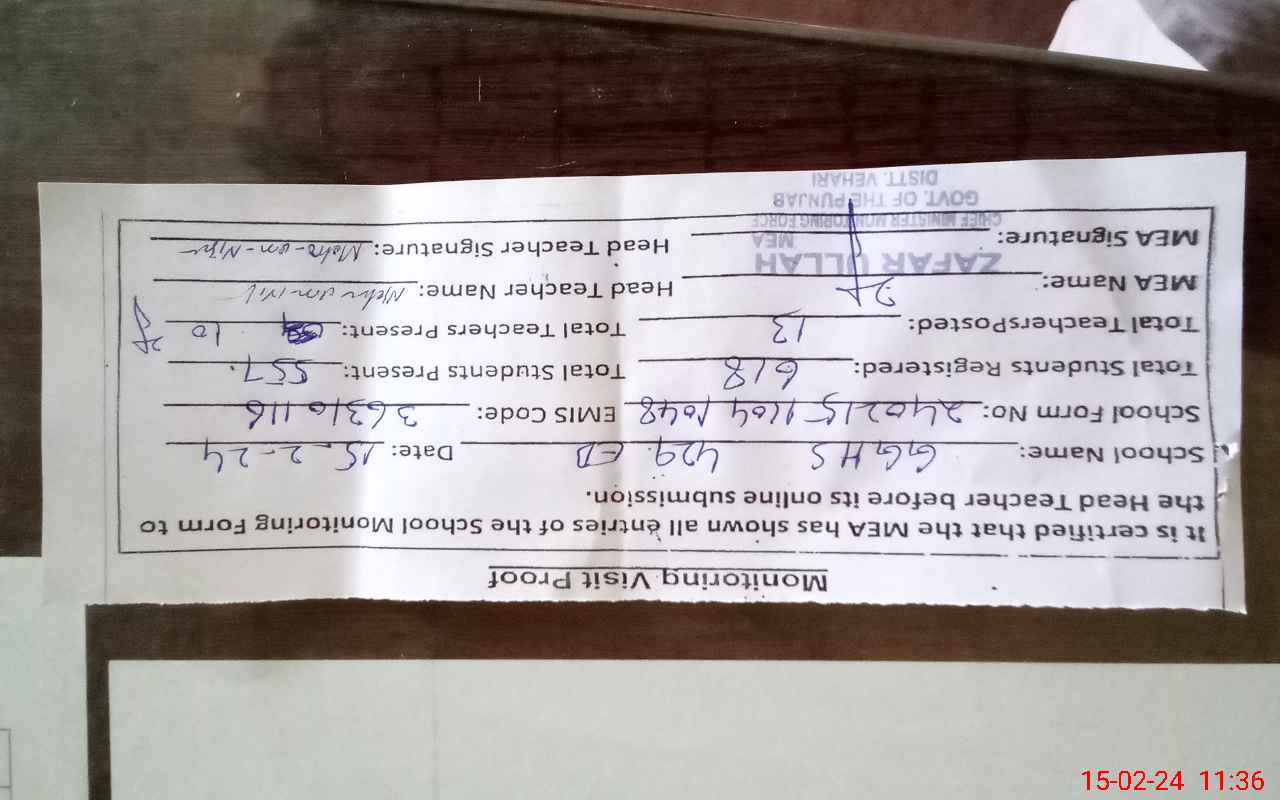 Monitoring Visit Proof
It is certified that the MEA has shown all entries of the School Monitoring Form to
the Head Teacher before its online submission.
School Name: GGHS 429 EB Date: 15-2-24
School Form No: 24021511041048 EMIS Code: 36310116
Total Students Registered: 618 Total Students Present: 557
Total TeachersPosted: 13 Total Teachers Present: 10
MEA Name: Head Teacher Name:
ZAFAR ULLAH
MEA
MEA Signature: Head Teacher Signature:
CHIEF MINISTER MONITORING FORCE
GOVT. OF THE PUNJAB
DISTT. VEHARI
15-02-24 11:36